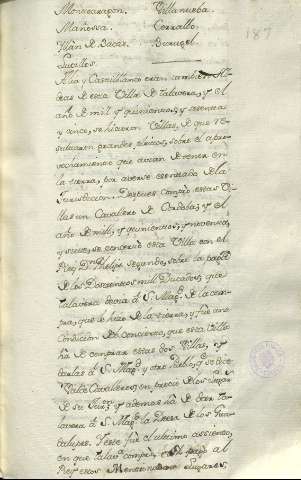 Montearagon. Villanueba.
Mañossa. Cerralbo.
Illan de Bacas. Brugel.
Sotillos.
Alia y Castilblanco eran tambien Al-
deas de esta Villa de Talavera, y el
año de mil y quinientos, y sesenta
y cinco, se hicieron Villas, de que re-
sultaron grandes pleitos, sobre el apro-
vechamiento que avian de tener en
la tierra, por averse esentado de la
Jurisdiccion. Despues compró estas Vi-
llas un Cavallero de Cordoba; y el
año de mil, y quinientos, y noventa,
y siete, se concertó esta Villa con el
Rey Dn. Phelipe segundo, sobre la paga
de los Doscientos mill Ducados, que
Talavera devia á S. Magd. de la com-
pra, que se hizo de la tierra, y fue una
condición del concierto, que esta Villa
há de comprar estas dos Villas, y
darlas á S. Magd. y otro Pueblo, q. se dice
Valdecavalleros, en precio de los lugares
de su Juron. y además há de dar Ta-
lavera á S. Magd. la Dehesa de los Gua-
dalupes. Y este fue el ultimo assiento,
en que Talaa. compró, el
Rey estos lugares,
187